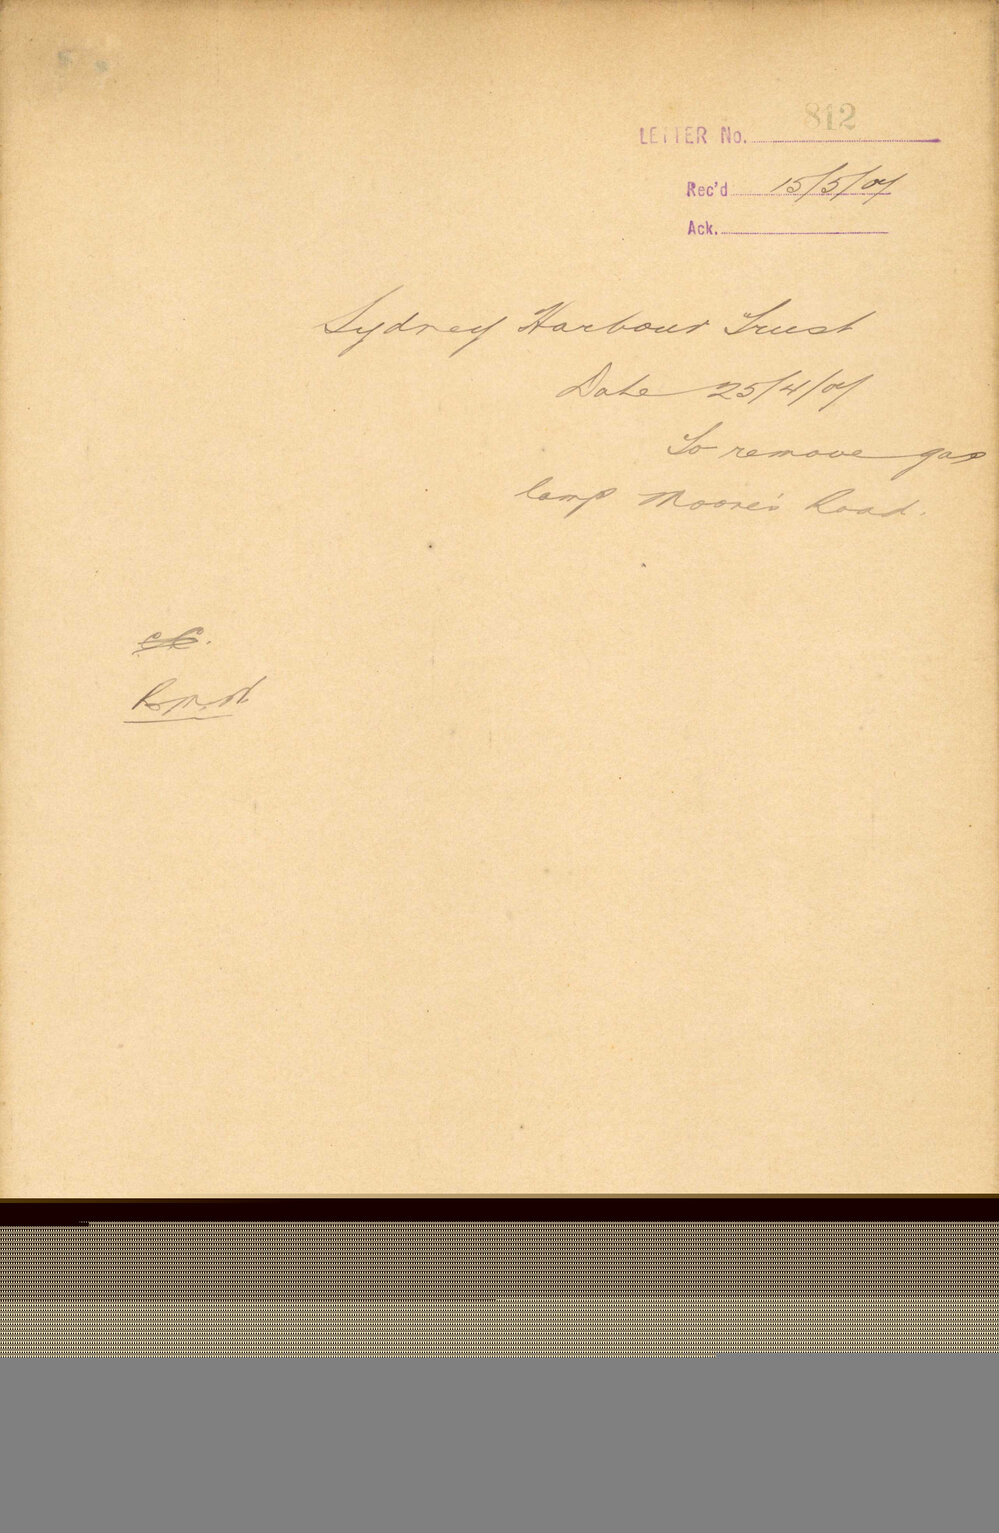 LETTER No. 812
Rec'd 15/5/07
Ack.
Sydney Harbour Trust
Date 25/4/07
To remove gas
lamp Moore's Road.